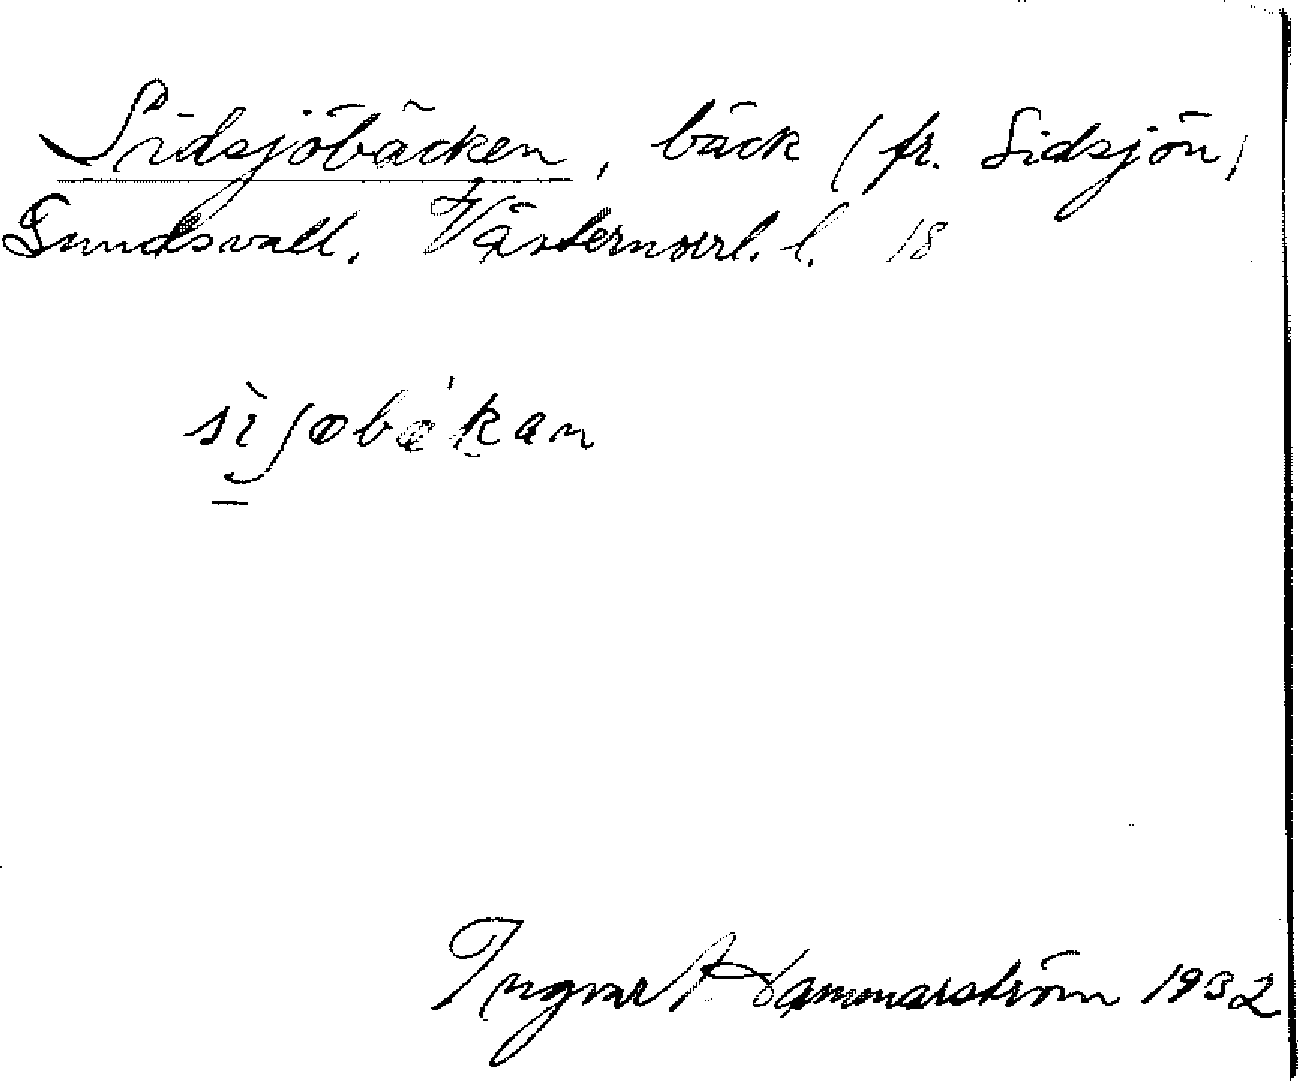 Sidsjöbäcken, bäck (fr. Sidsjön)
Sundsvall. Västernorrl. l. 18
Ingvar Hammarström 1932